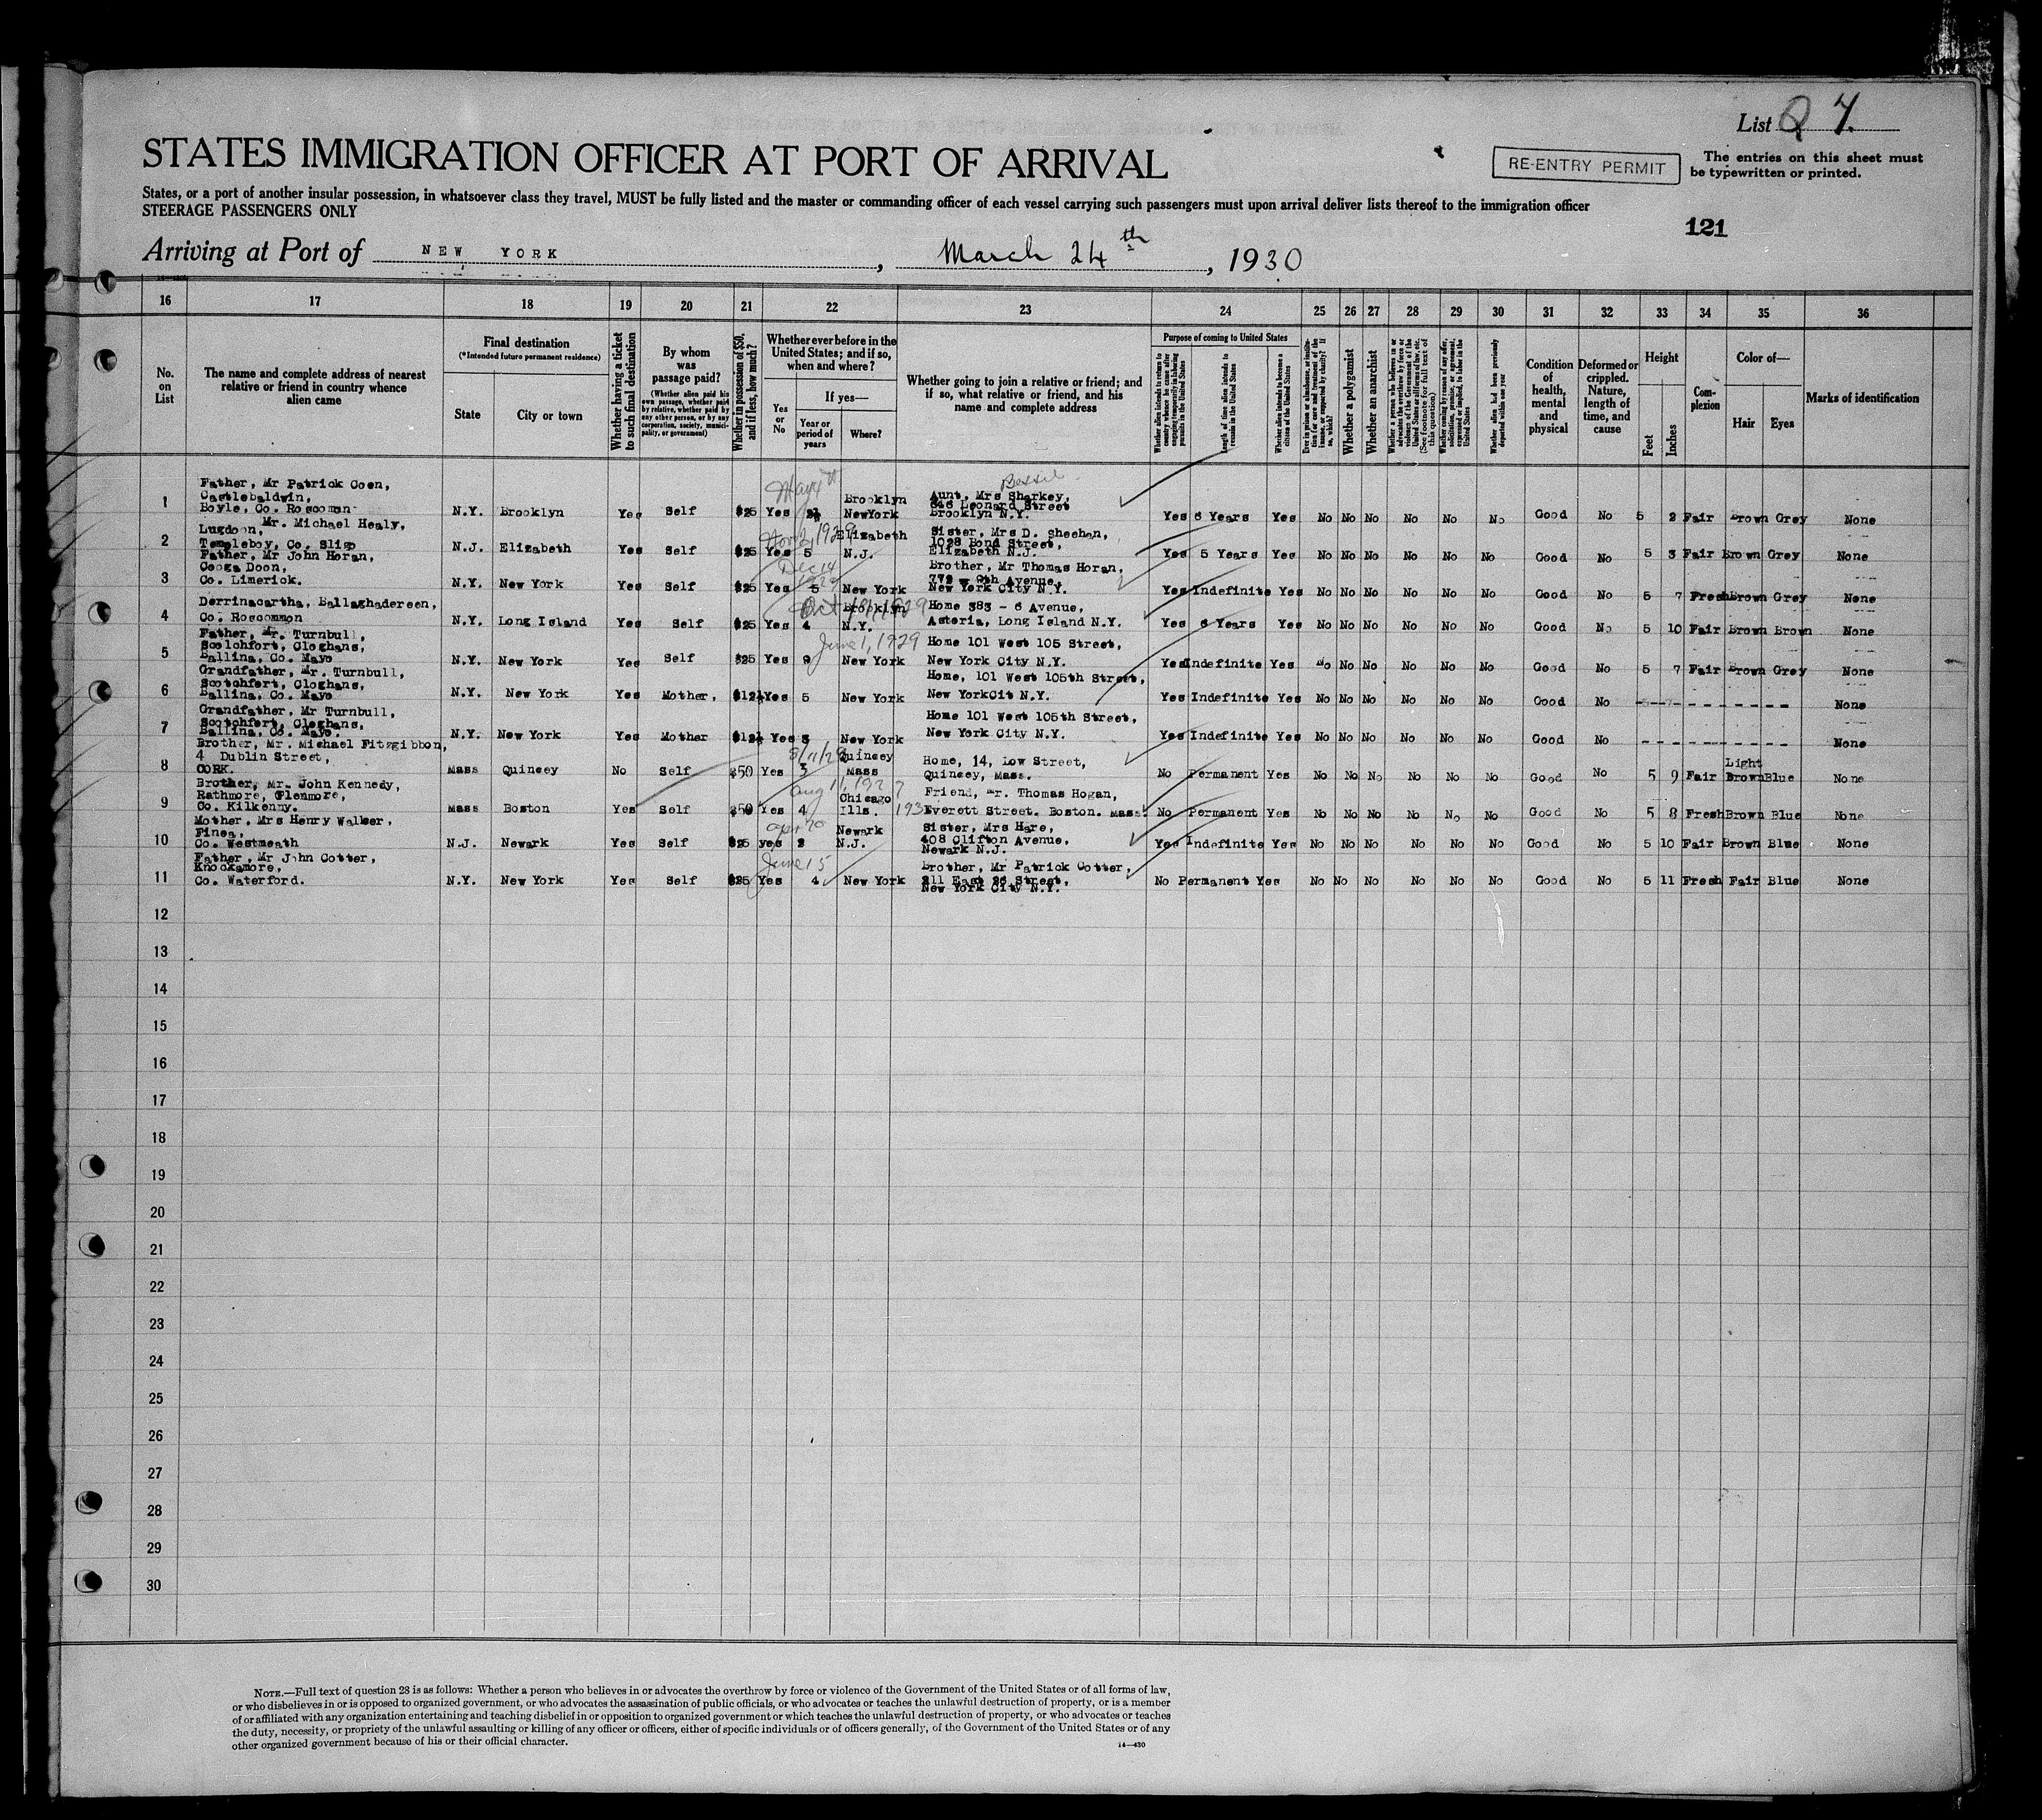 List Q 7.
STATES IMMIGRATION OFFICER AT PORT OF ARRIVAL
RE-ENTRY PERMIT
The entries on this sheet must
be typewritten or printed.
States, or a port of another insular possession, in whatsoever class they travel, MUST be fully listed and the master or commanding officer of each vessel carrying such passengers must upon arrival deliver lists thereof to the immigration officer
STEERAGE PASSENGERS ONLY
121
Arriving at Port of NEW YORK, March 24th, 1930
16 17 18 19 20 21 22 23 24 25 26 27 28 29 30 31 32 33 34 35 36
No. on List
The name and complete address of nearest relative or friend in country whence alien came
Final destination
(*Intended future permanent residence)
State
City or town
Whether having a ticket to such final destination
By whom was passage paid?
(Whether alien paid his own passage, whether paid by relative, whether paid by any other person, or by any corporation, society, municipality, or government)
Whether in possession of $50, and if less, how much?
Whether ever before in the United States; and if so, when and where?
Yes or No
If yes—
Year or period of years
Where?
Whether going to join a relative or friend; and if so, what relative or friend, and his name and complete address
Purpose of coming to United States
Whether alien intends to return to country whence he came after engaging temporarily in laboring pursuits in the United States
Length of time alien intends to remain in the United States
Whether alien intends to become a citizen of the United States
Ever in prison or almshouse, or institution for care and treatment of the insane, or supported by charity? If so, which?
Whether a polygamist
Whether an anarchist
Whether a person who believes in or advocates the overthrow by force or violence of the Government of the United States or all forms of law, etc. (See footnote for full text of this question)
Whether coming by reason of any offer, solicitation, promise, or agreement, expressed or implied, to labor in the United States
Whether alien had been previously deported within one year
Condition of health, mental and physical
Deformed or crippled. Nature, length of time, and cause
Height
Feet
Inches
Complexion
Color of—
Hair
Eyes
Marks of identification
1 Father, Mr Patrick Coen, Castlebaldwin, Boyle, Co. Roscoman N.Y. Brooklyn Yes Self $25 Yes Brooklyn NewYork Bessie Aunt, Mrs Sharkey, Leonard Street Brooklyn N.Y. Yes 6 Years Yes No No No No No No Good No 5 2 Fair Brown Grey None
2 Mr. Michael Healy, Lugdoon, Templeboy, Co. Sligo N.J. Elizabeth Yes Self $25 Yes 1929 5 Elizabeth N.J. Sister, Mrs D. Sheehan, 1028 Bond Street, Elizabeth N.J. Yes 5 Years Yes No No No No No No Good No 5 3 Fair Brown Grey None
3 Father, Mr John Horan, Cooga Doon, Co. Limerick. N.Y. New York Yes Self $25 Yes Dec 14 1929 5 New York Brother, Mr Thomas Horan, 772 - 9th Avenue, New York City N.Y. Yes Indefinite Yes No No No No No No Good No 5 7 Fresh Brown Grey None
4 Derrinacartha, Ballaghadereen, Co. Roscommon N.Y. Long Island Yes Self $25 Yes Oct 18, 1929 4 Brooklyn N.Y. Home 383 - 6 Avenue, Astoria, Long Island N.Y. Yes 6 Years Yes No No No No No No Good No 5 10 Fair Brown Brown None
5 Father, Mr. Turnbull, Scolchfort, Cloghans, Ballina, Co. Mayo N.Y. New York Yes Self $25 Yes June 1, 1929 9 New York Home 101 West 105 Street, New York City N.Y. Yes Indefinite Yes No No No No No No Good No 5 7 Fair Brown Grey None
6 Grandfather, Mr. Turnbull, Scotchfort, Cloghans, Ballina, Co. Mayo N.Y. New York Yes Mother, $12½ Yes 5 New York Home, 101 West 105th Street, New YorkCit N.Y. Yes Indefinite Yes No No No No No No Good No - - - - - - - None
7 Grandfather, Mr Turnbull, Scotchfort, Cloghans, Ballina, Co. Mayo. N.Y. New York Yes Mother $12½ Yes 3 New York Home 101 West 105th Street, New York City N.Y. Yes Indefinite Yes No No No No No No Good No - - - - - - - None
8 Brother, Mr. Michael Fitzgibbon, 4 Dublin Street, CORK. Mass Quincey No Self $50 Yes 8/11/29 3 Quincey Mass Home, 14, Low Street, Quincey, Mass. No Permanent Yes No No No No No No Good No 5 9 Fair Light Brown Blue None
9 Brother, Mr. John Kennedy, Rathmore, Glenmore, Co. Kilkenny. Mass Boston Yes Self $50 Yes Aug 11, 4 Chicago Ills. Friend, Mr. Thomas Hogan, 193 Everett Street. Boston. Mass. No Permanent Yes No No No No No No Good No 5 8 Fresh Brown Blue None
10 Mother, Mrs Henry Walker, Finea, Co. Westmeath N.J. Newark Yes Self $25 yes Newark N.J. Sister, Mrs Hare, 408 Clifton Avenue, Newark N.J. Yes Indefinite Yes No No No No No No Good No 5 10 Fair Brown Blue None
11 Father, Mr John Cotter, Knockamore, Co. Waterford. N.Y. New York Yes Self $25 Yes June 15 4 New York Brother, Mr Patrick Cotter, 211 East 26 Street, New York City N.Y. No Permanent Yes No No No No No No Good No 5 11 Fresh Fair Blue None
12
13
14
15
16
17
18
19
20
21
22
23
24
25
26
27
28
29
30
NOTE.—Full text of question 28 is as follows: Whether a person who believes in or advocates the overthrow by force or violence of the Government of the United States or of all forms of law,
or who disbelieves in or is opposed to organized government, or who advocates the assassination of public officials, or who advocates or teaches the unlawful destruction of property, or is a member
of or affiliated with any organization entertaining and teaching disbelief in or opposition to organized government or which teaches the unlawful destruction of property, or who advocates or teaches
the duty, necessity, or propriety of the unlawful assaulting or killing of any officer or officers, either of specific individuals or of officers generally, of the Government of the United States or of any
other organized government because of his or their official character.
14—430